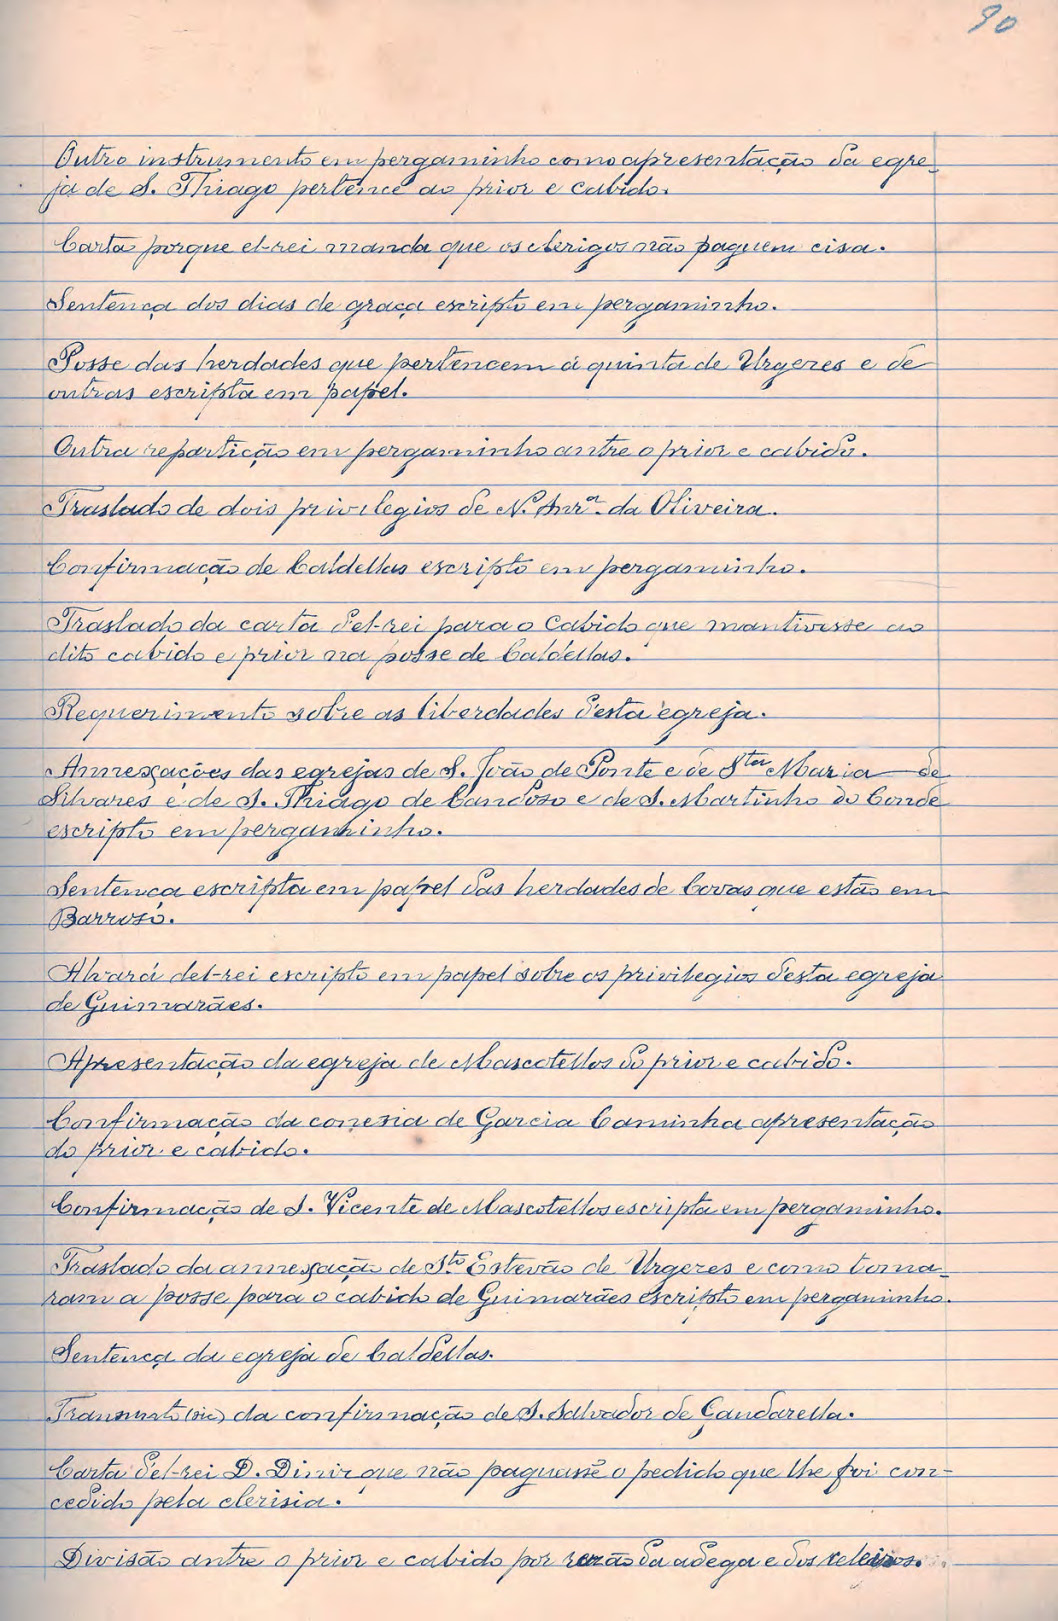 90
Outro instrumento em pergaminho como apresentação da egre-
ja de S. Thiago pertence ao prior e cabido.
Carta porque el-rei manda que os clerigos não paguem cisa.
Sentença dos dias de graça escripto em pergaminho.
Posse das herdades que pertencem á quinta de Urgeres e de
outras escripta em papel.
Outra repartição em pergaminho antre o prior e cabido.
Traslado de dois privilegios de N. Snrª. da Oliveira.
Confirmação de Caldellas escripto em pergaminho.
Traslado da carta del-rei para o Cabido que mantivesse ao
dito cabido e prior na posse de Caldellas.
Requerimento sobre as liberdades desta egreja.
Annexações das egrejas de S. João de Ponte e de Sta Maria de
Silvares e de S. Thiago de Candoso e de S. Martinho do Conde
escripto em pergaminho.
Sentença escripta em papel das herdades de Covas que estão em
Barroso.
Alvará del-rei escripto em papel sobre os privilegios desta egreja
de Guimarães.
Apresentação da egreja de Mascotellos do prior e cabido.
Confirmação da conesia de Garcia Caminha apresentação
do prior e cabido.
Confirmação de S. Vicente de Mascotellos escripta em pergaminho.
Traslado da annexação de Sto Estevão de Urgeres e como toma-
ram a posse para o cabido de Guimarães escripto em pergaminho.
Sentença da egreja de Caldellas.
(sic) da confirmação de S. Salvador de Gandarella.
Carta del-rei D. Diniz que não paguassẽ o pedido que lhe foi con-
cedido pela clerisia.
Divisão antre o prior e cabido por razão da adega e dos